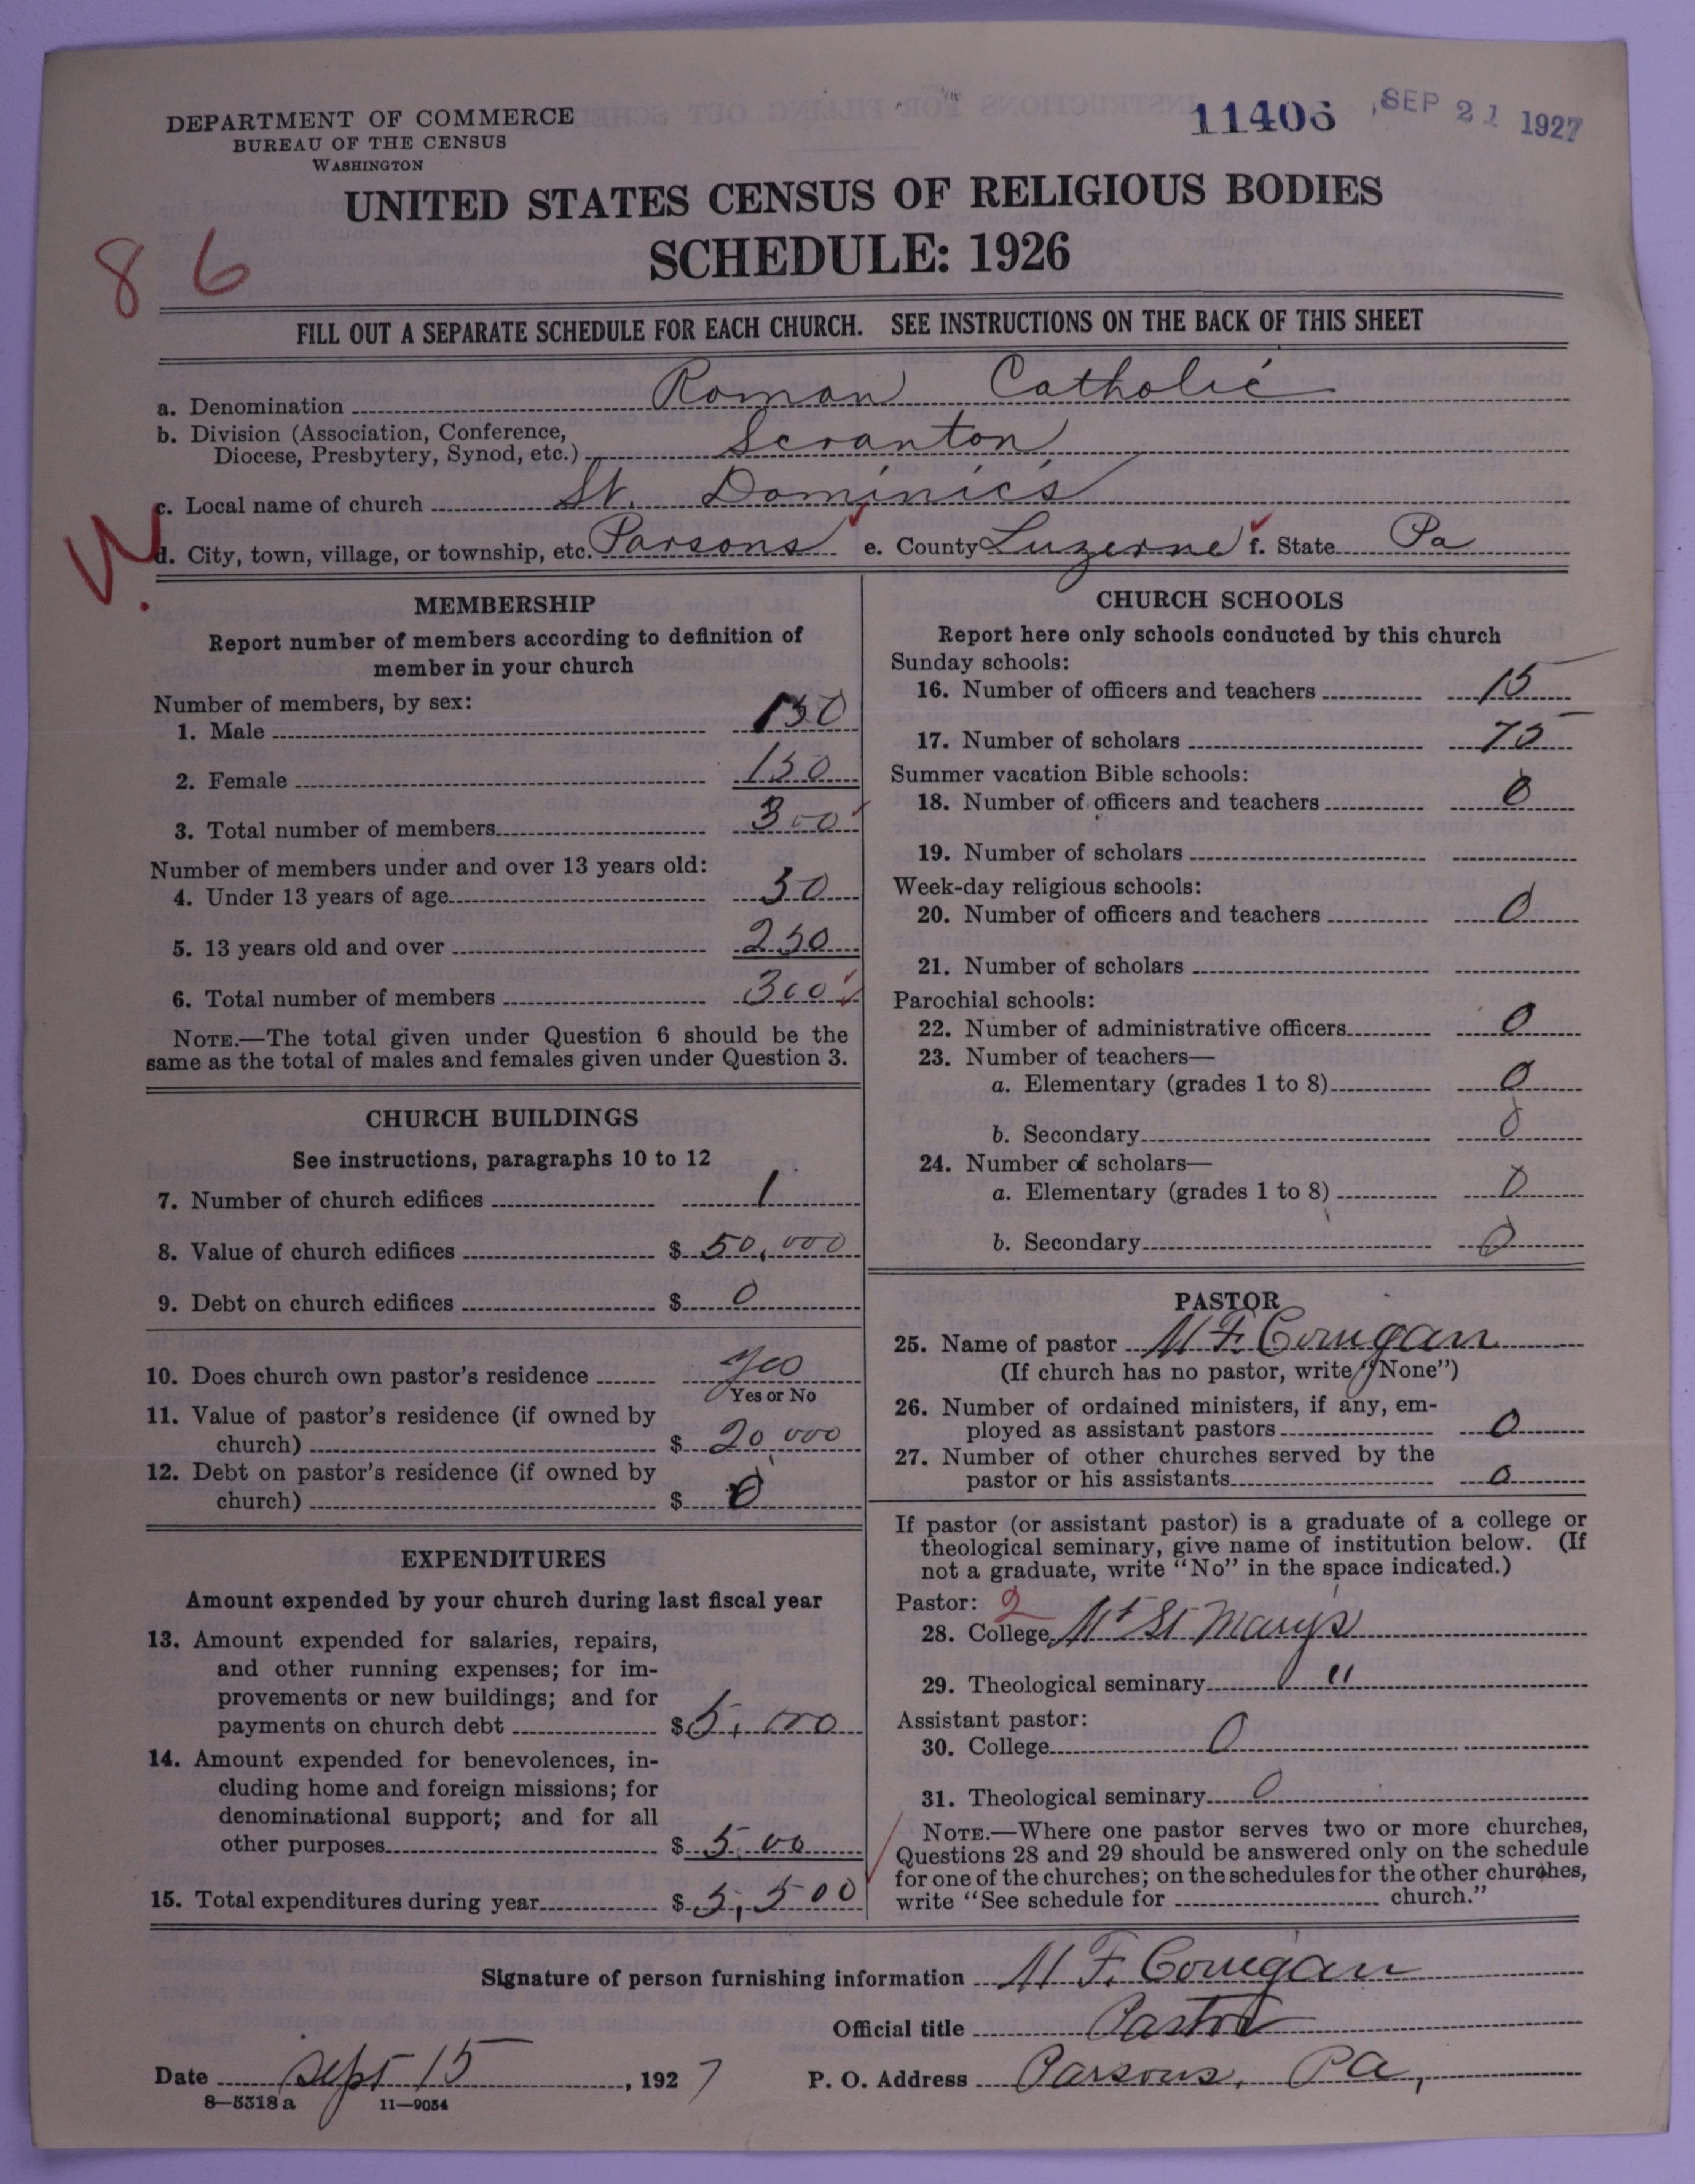 DEPARTMENT OF COMMERCE
BUREAU OF THE CENSUS
WASHINGTON
11406 SEP 21 1927
UNITED STATES CENSUS OF RELIGIOUS BODIES
SCHEDULE: 1926
86
FILL OUT A SEPARATE SCHEDULE FOR EACH CHURCH. SEE INSTRUCTIONS ON THE BACK OF THIS SHEET
a. Denomination Roman Catholic
b. Division (Association, Conference,
Diocese, Presbytery, Synod, etc.) Scranton
c. Local name of church St. Dominics
d. City, town, village, or township, etc. Parsons e. County Luzerne f. State Pa
MEMBERSHIP
Report number of members according to definition of
member in your church
Number of members, by sex:
1. Male 150
2. Female 150
3. Total number of members 300
Number of members under and over 13 years old:
4. Under 13 years of age 50
5. 13 years old and over 250
6. Total number of members 300
NOTE.—The total given under Question 6 should be the
same as the total of males and females given under Question 3.
CHURCH BUILDINGS
See instructions, paragraphs 10 to 12
7. Number of church edifices 1
8. Value of church edifices $ 50,000
9. Debt on church edifices $ 0
10. Does church own pastor's residence yes
Yes or No
11. Value of pastor's residence (if owned by
church) $ 20,000
12. Debt on pastor's residence (if owned by
church) $ 0
EXPENDITURES
Amount expended by your church during last fiscal year
13. Amount expended for salaries, repairs,
and other running expenses; for im-
provements or new buildings; and for
payments on church debt $ 5,000
14. Amount expended for benevolences, in-
cluding home and foreign missions; for
denominational support; and for all
other purposes $ 500
15. Total expenditures during year $ 5,500
CHURCH SCHOOLS
Report here only schools conducted by this church
Sunday schools:
16. Number of officers and teachers 15
17. Number of scholars 75
Summer vacation Bible schools:
18. Number of officers and teachers 0
19. Number of scholars
Week-day religious schools:
20. Number of officers and teachers 0
21. Number of scholars
Parochial schools:
22. Number of administrative officers 0
23. Number of teachers—
a. Elementary (grades 1 to 8) 0
b. Secondary 0
24. Number of scholars—
a. Elementary (grades 1 to 8) 0
b. Secondary 0
PASTOR
25. Name of pastor M F. Corrigan
(If church has no pastor, write "None")
26. Number of ordained ministers, if any, em-
ployed as assistant pastors 0
27. Number of other churches served by the
pastor or his assistants 0
If pastor (or assistant pastor) is a graduate of a college or
theological seminary, give name of institution below. (If
not a graduate, write "No" in the space indicated.)
Pastor: 2
28. College Mt St Mary's
29. Theological seminary "
Assistant pastor:
30. College 0
31. Theological seminary 0
NOTE.—Where one pastor serves two or more churches,
Questions 28 and 29 should be answered only on the schedule
for one of the churches; on the schedules for the other churches,
write "See schedule for church."
Signature of person furnishing information M F. Corrigan
Official title Pastor
Date Sept 15, 1927 P. O. Address Parsons, Pa,
8—5318a 11—9054